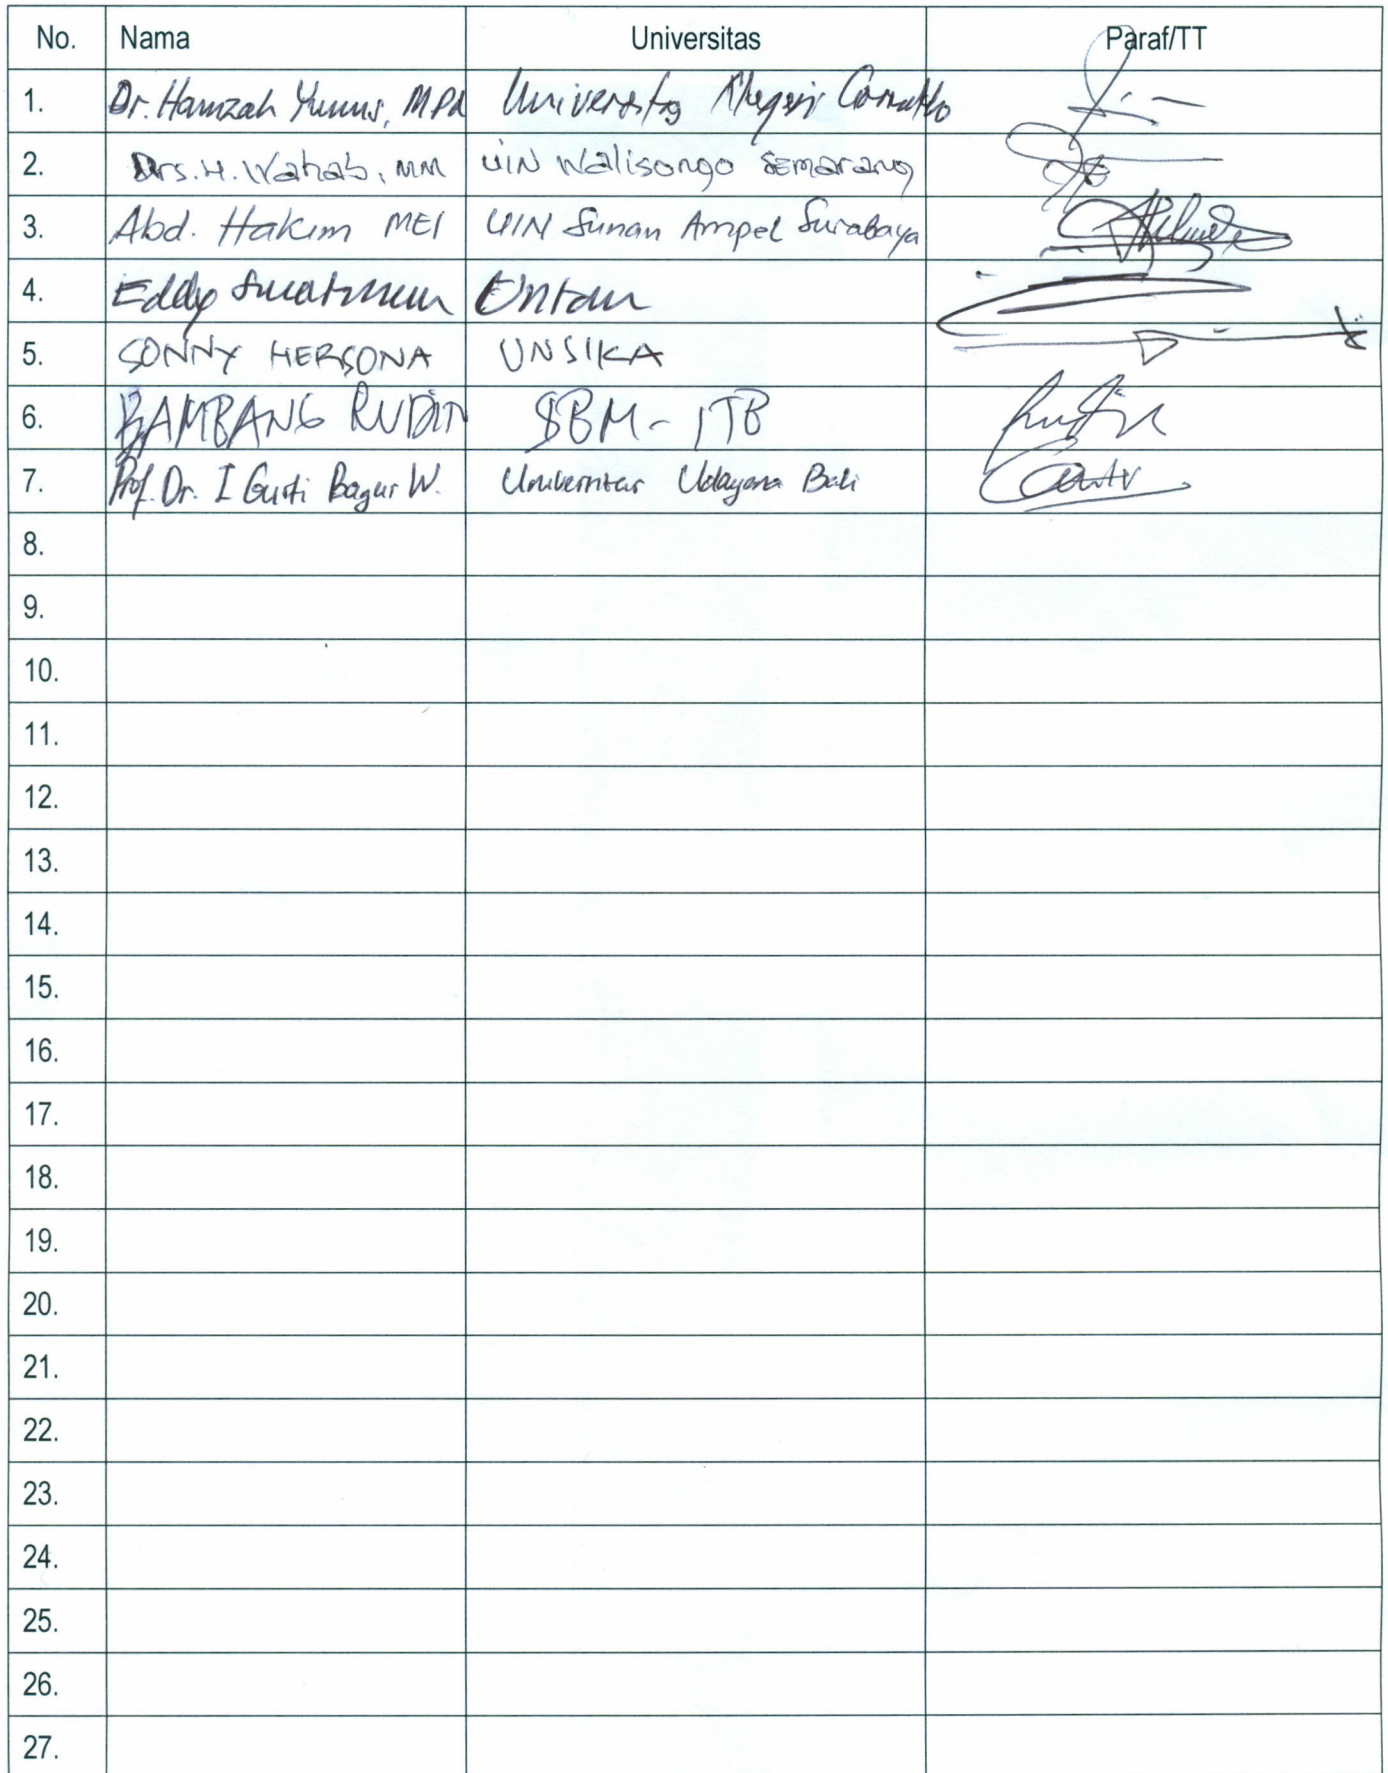 No. Nama Universitas Paraf/TT
1. Dr. Hamzah Yunus, MPd Universitas Negeri Gorontalo
2. Drs. H. Wahab, MM UIN Walisongo Semarang
3. Abd. Hakim MEI UIN Sunan Ampel Surabaya
4. Eddy Untan
5. SONNY HERSONA UNSIKA
6. BAMBANG RUDITO SBM - ITB
7. Prof. Dr. I Gusti Bagus W. Universitas Udayana Bali
8.
9.
10.
11.
12.
13.
14.
15.
16.
17.
18.
19.
20.
21.
22.
23.
24.
25.
26.
27.